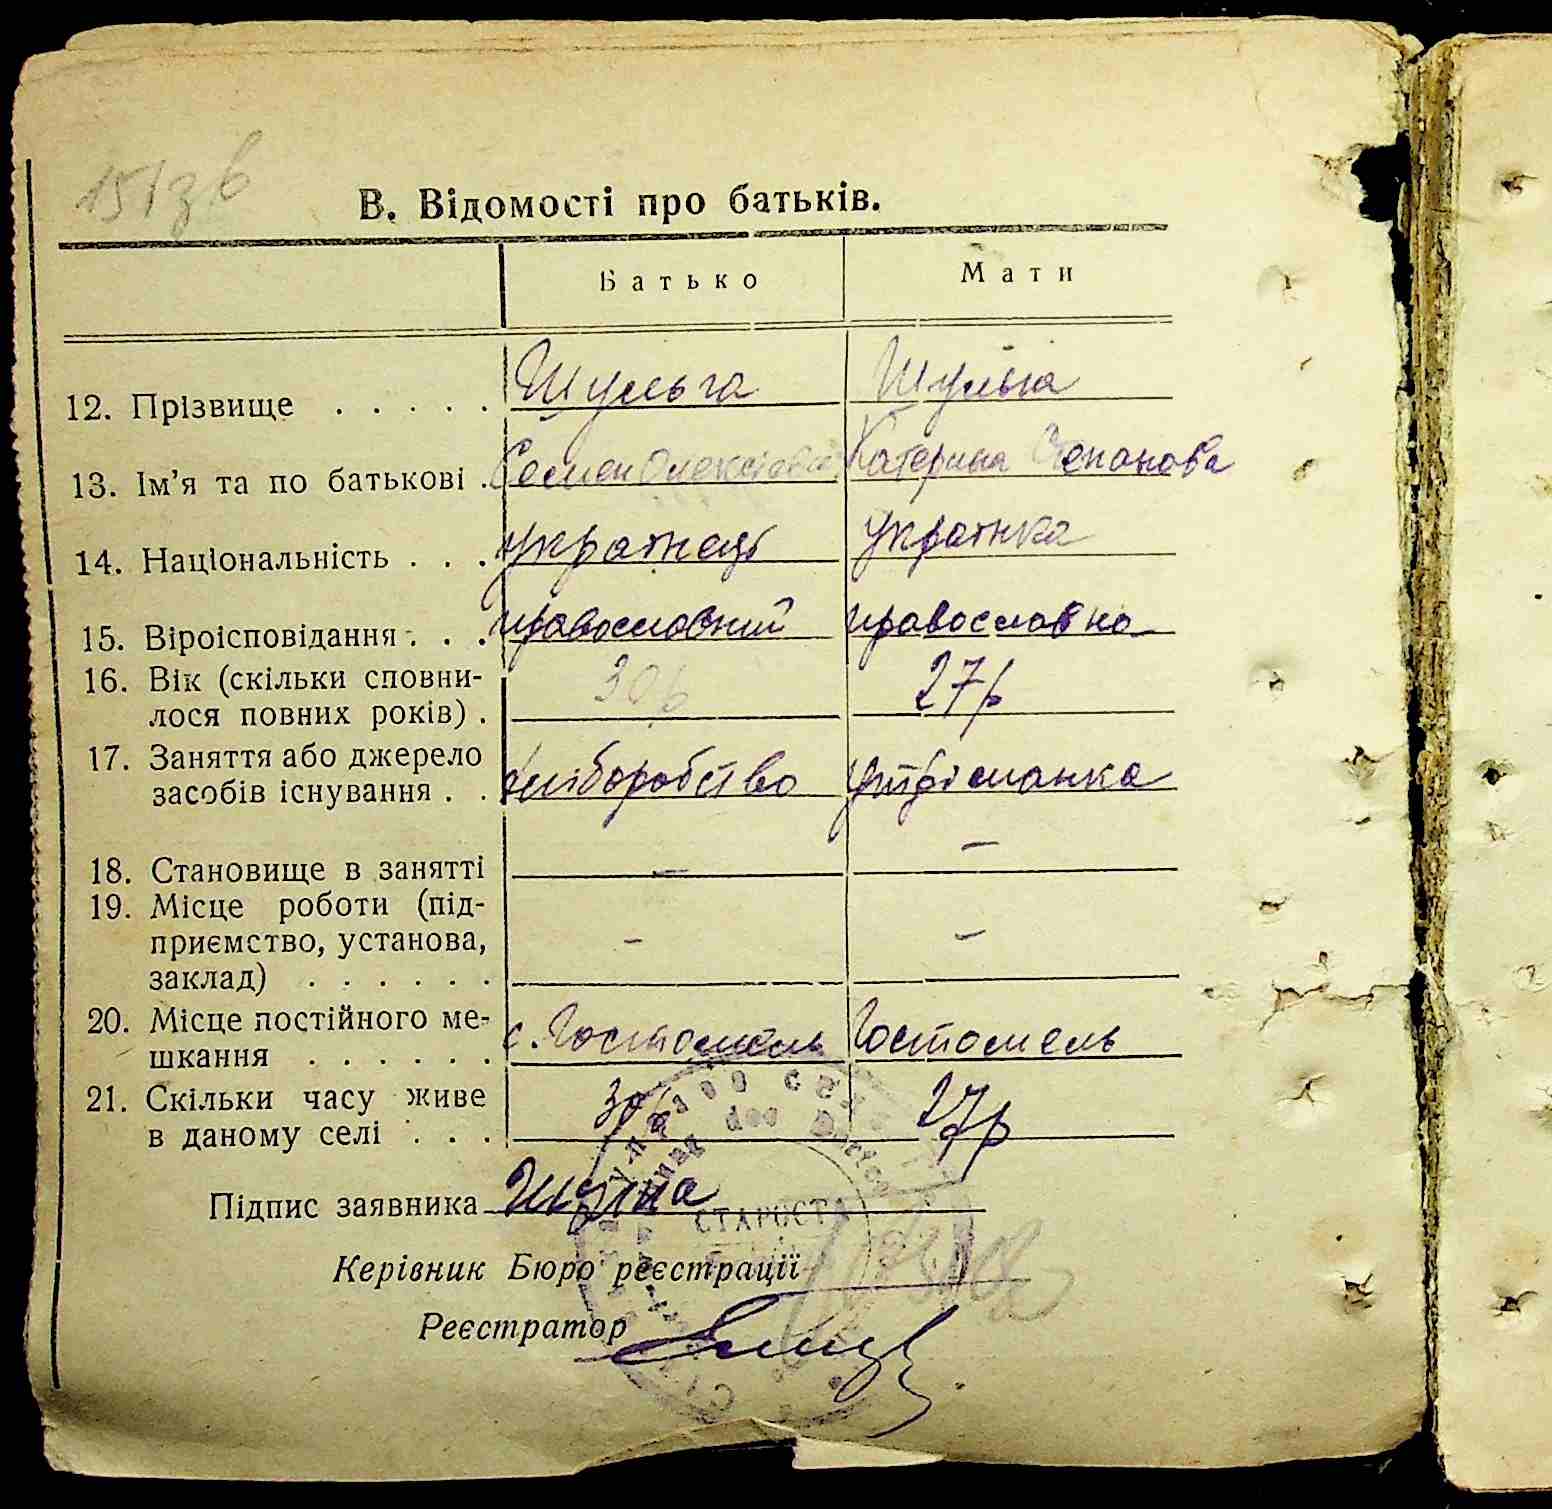 В. Відомості про батьків.
Батько Мати
12. Прізвище . . . . . Шульга Шульга
13. Ім'я та по батькові . Семен Олексієвич Катерина Степанова
14. Національність . . . українець українка
15. Віроісповідання . . . православний православна
16. Вік (скільки сповни-
лося повних років) . 30р 27р
17. Заняття або джерело
засобів існування . . хліборобство утріманка
18. Становище в занятті — —
19. Місце роботи (під-
приємство, установа,
заклад) . . . . . . – –
20. Місце постійного ме-
шкання . . . . . . с. Гостомель Гостомель
21. Скільки часу живе
в даному селі . . . 30р 27р
Підпис заявника Шульга
СТАРОСТА
Керівник Бюро реєстрації
Реєстратор